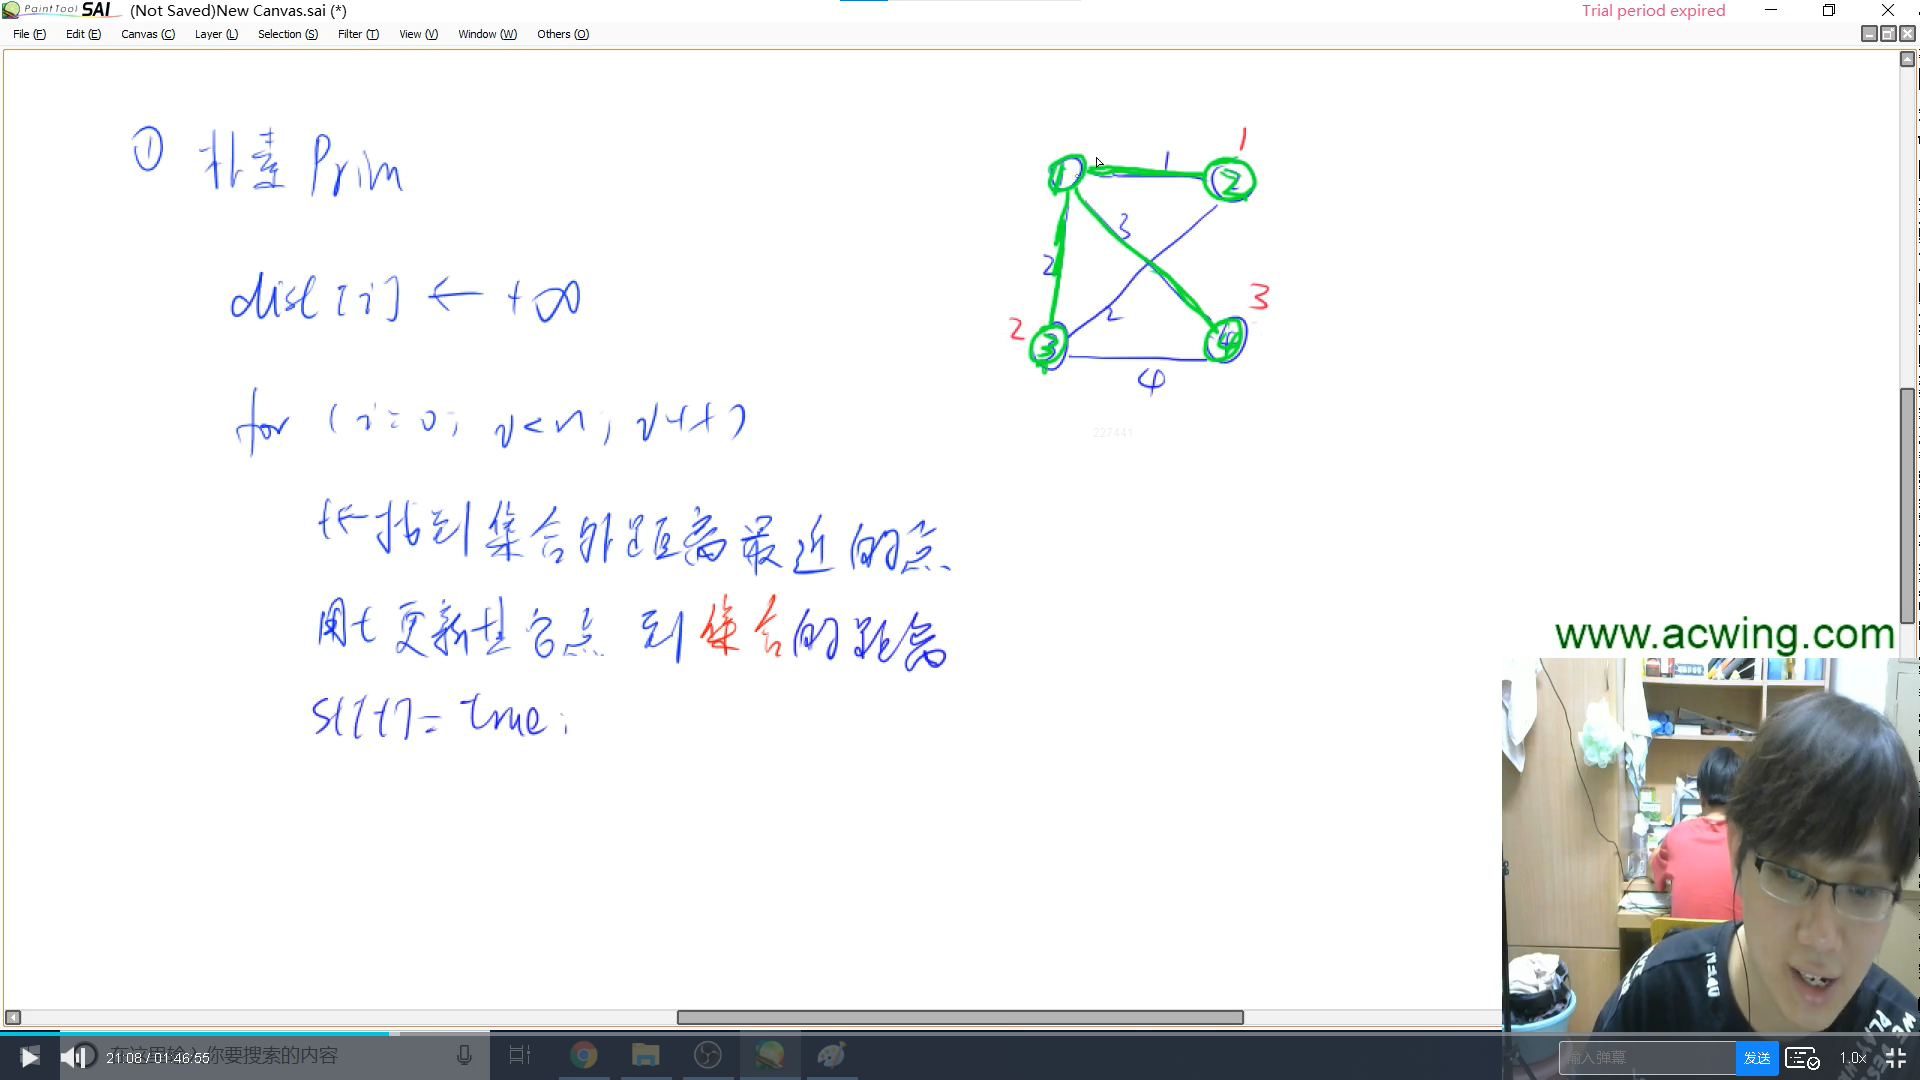 PaintTool SAI (Not Saved)New Canvas.sai (*) Trial period expired
File (F) Edit (E) Canvas (C) Layer (L) Selection (S) Filter (T) View (V) Window (W) Others (O)
① 朴素 Prim
dist[i] ← +∞
for (i=0; i<n; i++)
t←找到集合外距离最近的点
用t更新其它点 到集合的距离
st[t]=true;
1
1
1 2
3
2
2
2
3
3 4
4
227441
www.acwing.com
21:08 / 01:46:55
在这里输入你要搜索的内容
输入弹幕 发送 1.0x